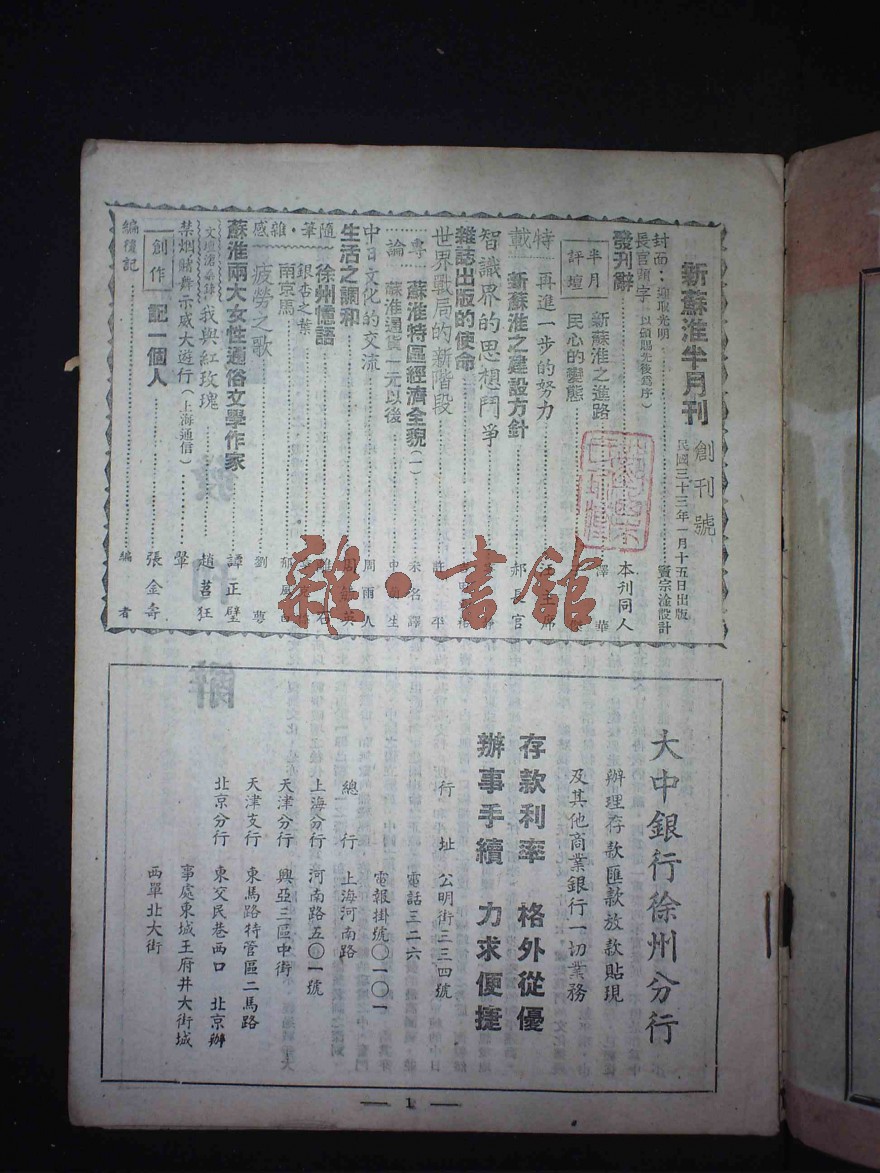 新蘇淮半月刊
創刊號
民國三十三年一月十五日出版
封面：迎取光明……竇宗淦設計
長官題字（以頒賜先後為序）
發刊辭……本刊同人
半月評壇
新蘇淮之進路
民心的變態
特載
再進一步的努力
新蘇淮之建設方針……郝長官
智識界的思想鬥爭
雜誌出版的使命
世界戰局的新階段……平
專論
蘇淮特區經濟全貌（一）……未名譯
蘇淮通貨一元以後……中生
中日文化的交流……周雨人
生活之調和
隨筆・雜感
徐州憶語……石
銀杏之葉
南京馬
疲勞之歌……劉萼
蘇淮兩大女性通俗文學作家……譚正璧
我與紅玫瑰……趙苕狂
禁烟賭舞示威大遊行（上海通信）……
創作
記一個人……張金壽
編後記……編者
雜・書館
大中銀行徐州分行
辦理存款匯款放款貼現
及其他商業銀行一切業務
存款利率　格外從優
辦事手續　力求便捷
行址　公明街三三四號
電話三二六
電報掛號〇一〇一
總行　上海河南路
上海分行　河南路五〇一號
天津分行　興亞三區中街
天津支行　東馬路特管區二馬路
北京分行　東交民巷西口　北京辦
事處東城王府井大街城
西單北大街
— 1 —